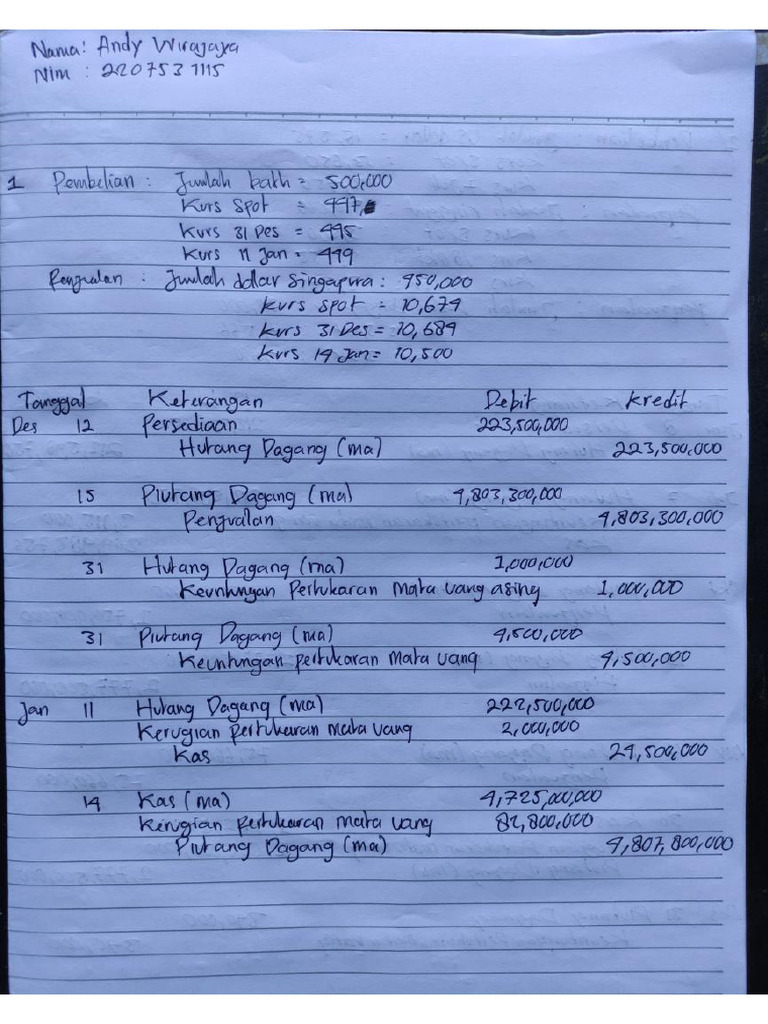 Nama: Andy Wirajaya
Nim : 2207531115
1 Pembelian : Jumlah bath = 500,000
Kurs Spot = 447,
Kurs 31 Des = 445
Kurs 11 Jan = 449
Penjualan : Jumlah dollar Singapura : 450,000
Kurs Spot = 10,674
Kurs 31 Des = 10,684
Kurs 14 Jan = 10,500
Tanggal Keterangan Debit Kredit
Des 12 Persediaan 223,500,000
Hutang Dagang (ma) 223,500,000
15 Piutang Dagang (ma) 4,803,300,000
Penjualan 4,803,300,000
31 Hutang Dagang (ma) 1,000,000
Keuntungan Pertukaran Mata uang asing 1,000,000
31 Piutang Dagang (ma) 4,500,000
Keuntungan pertukaran Mata uang 4,500,000
Jan 11 Hutang Dagang (ma) 222,500,000
Kerugian pertukaran mata uang 2,000,000
Kas 24,500,000
14 Kas (ma) 4,725,000,000
Kerugian pertukaran mata uang 82,800,000
Piutang Dagang (ma) 4,807,800,000